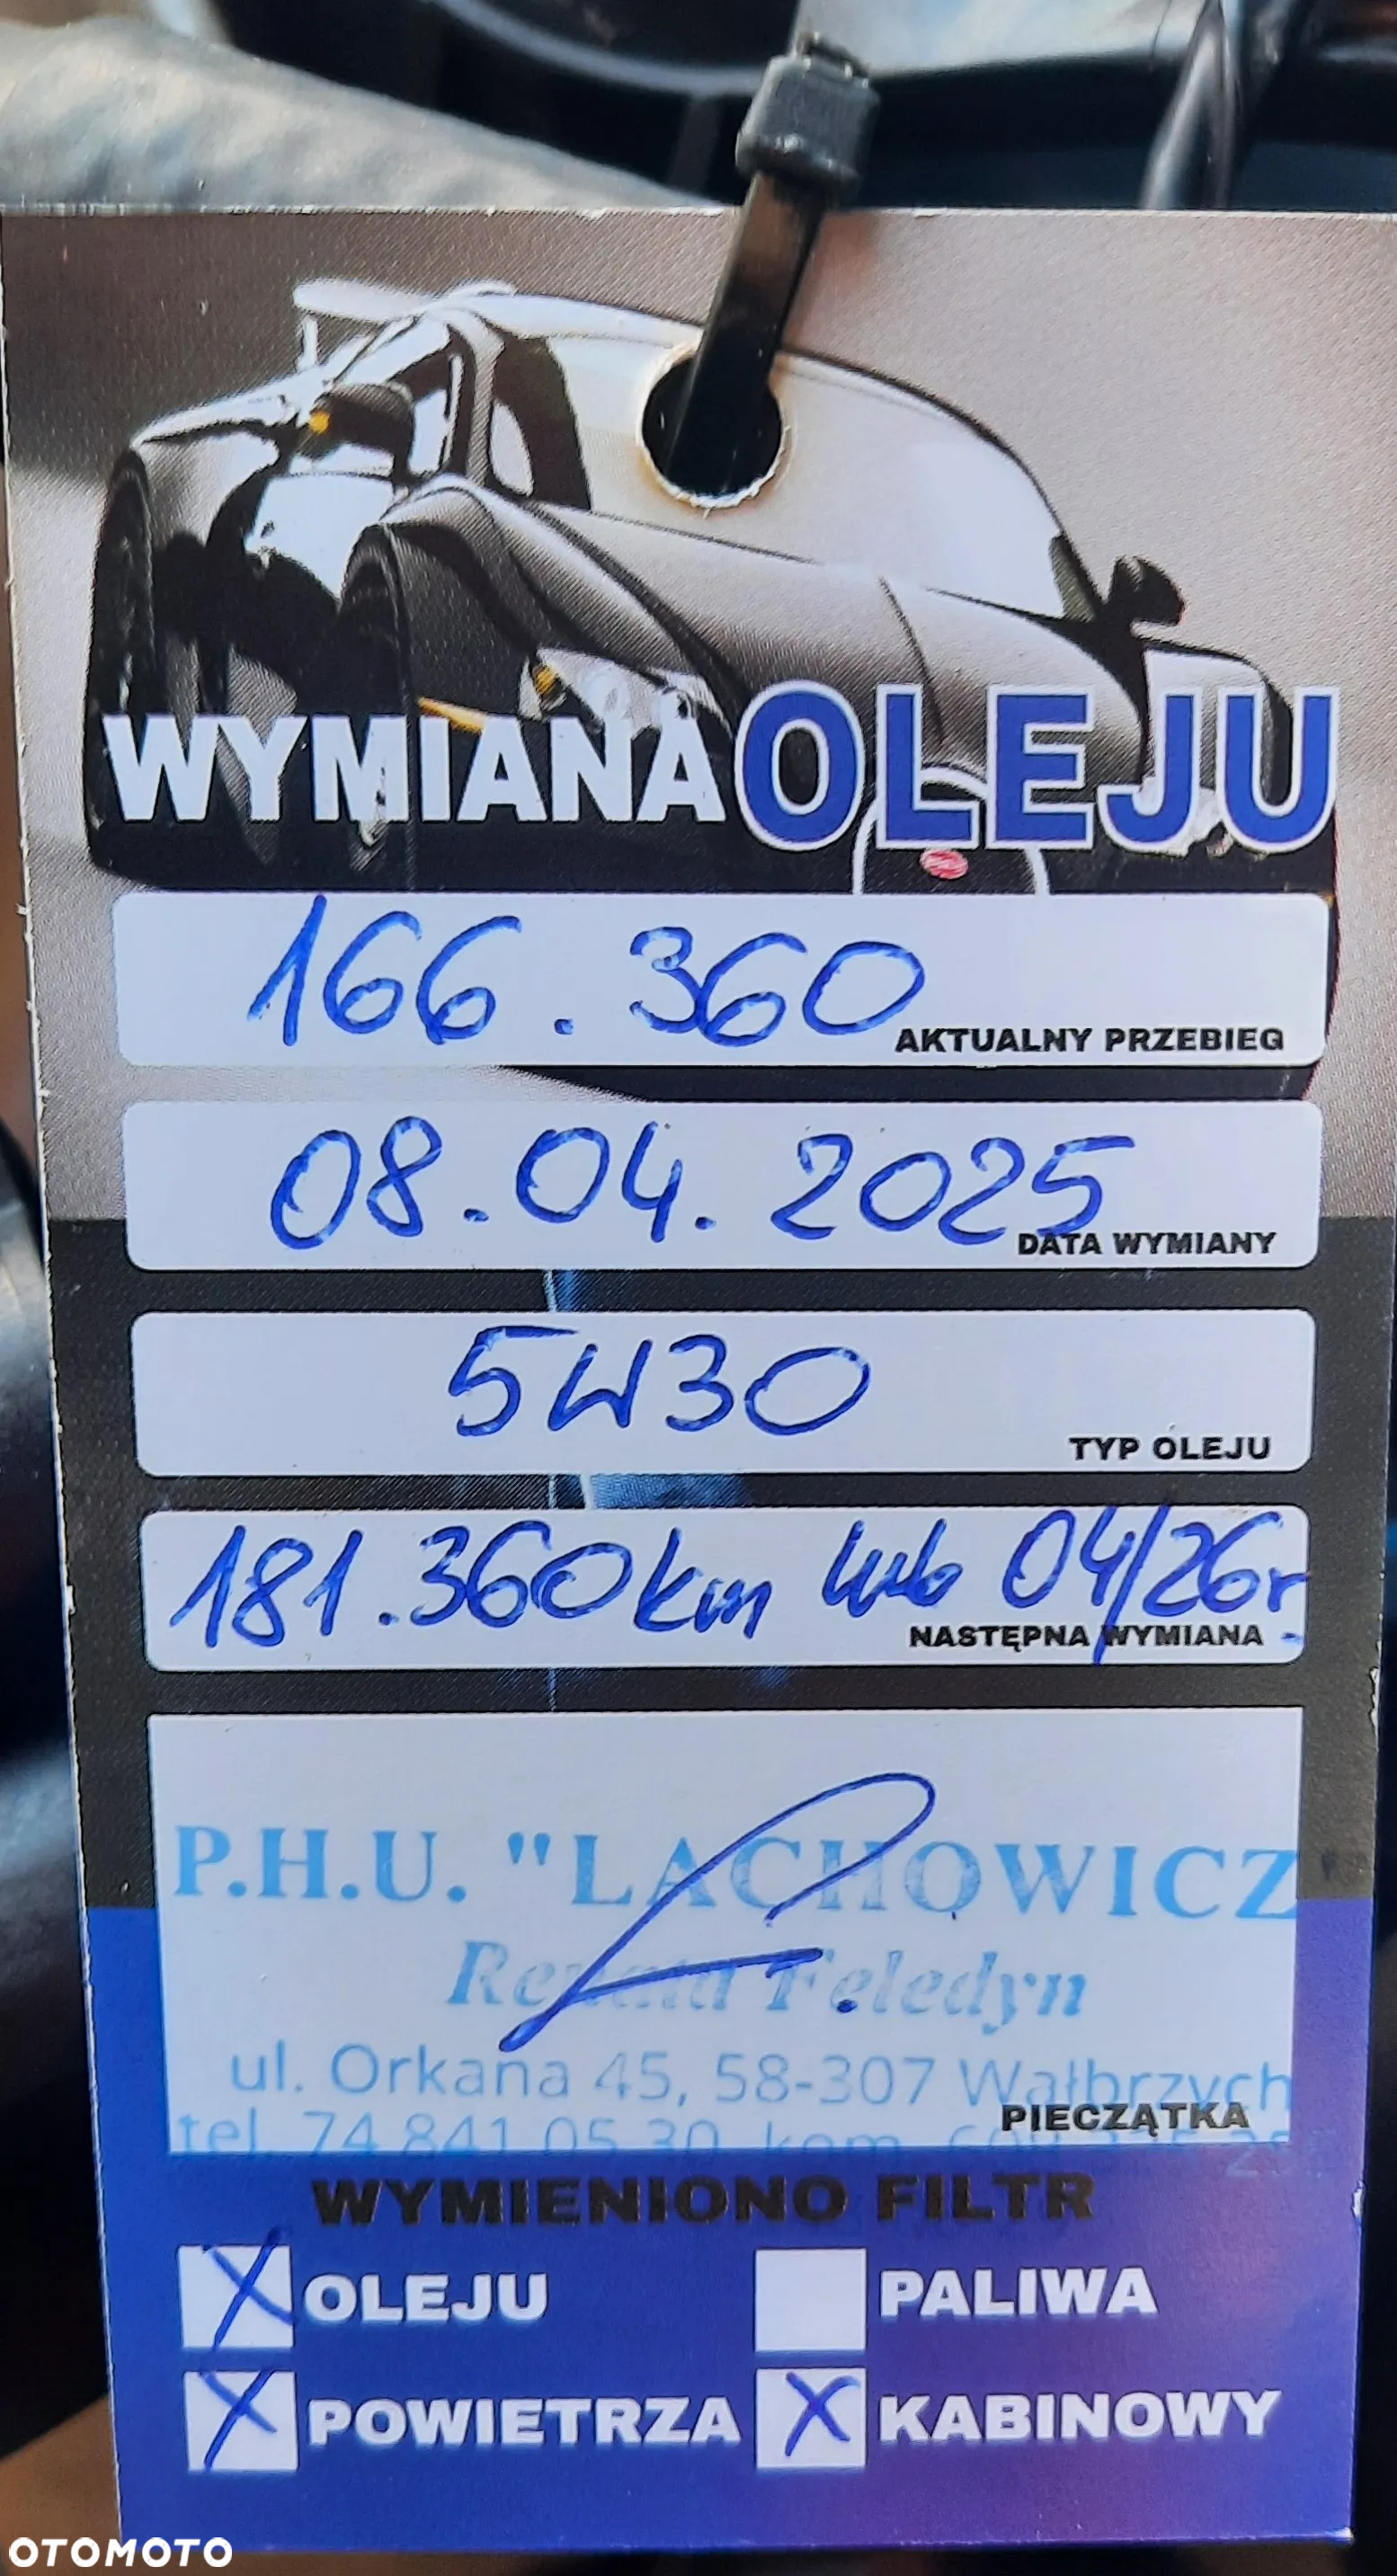 WYMIANA OLEJU
166.360
AKTUALNY PRZEBIEG
08.04.2025
DATA WYMIANY
5W30
TYP OLEJU
181.360km lub 04/26r.
NASTĘPNA WYMIANA
P.H.U. "LACHOWICZ"
Renata Feledyn
ul. Orkana 45, 58-307 Wałbrzych
PIECZĄTKA
tel. 74 841 05 30 kom.
WYMIENIONO FILTR
X OLEJU PALIWA
X POWIETRZA X KABINOWY
OTOMOTO